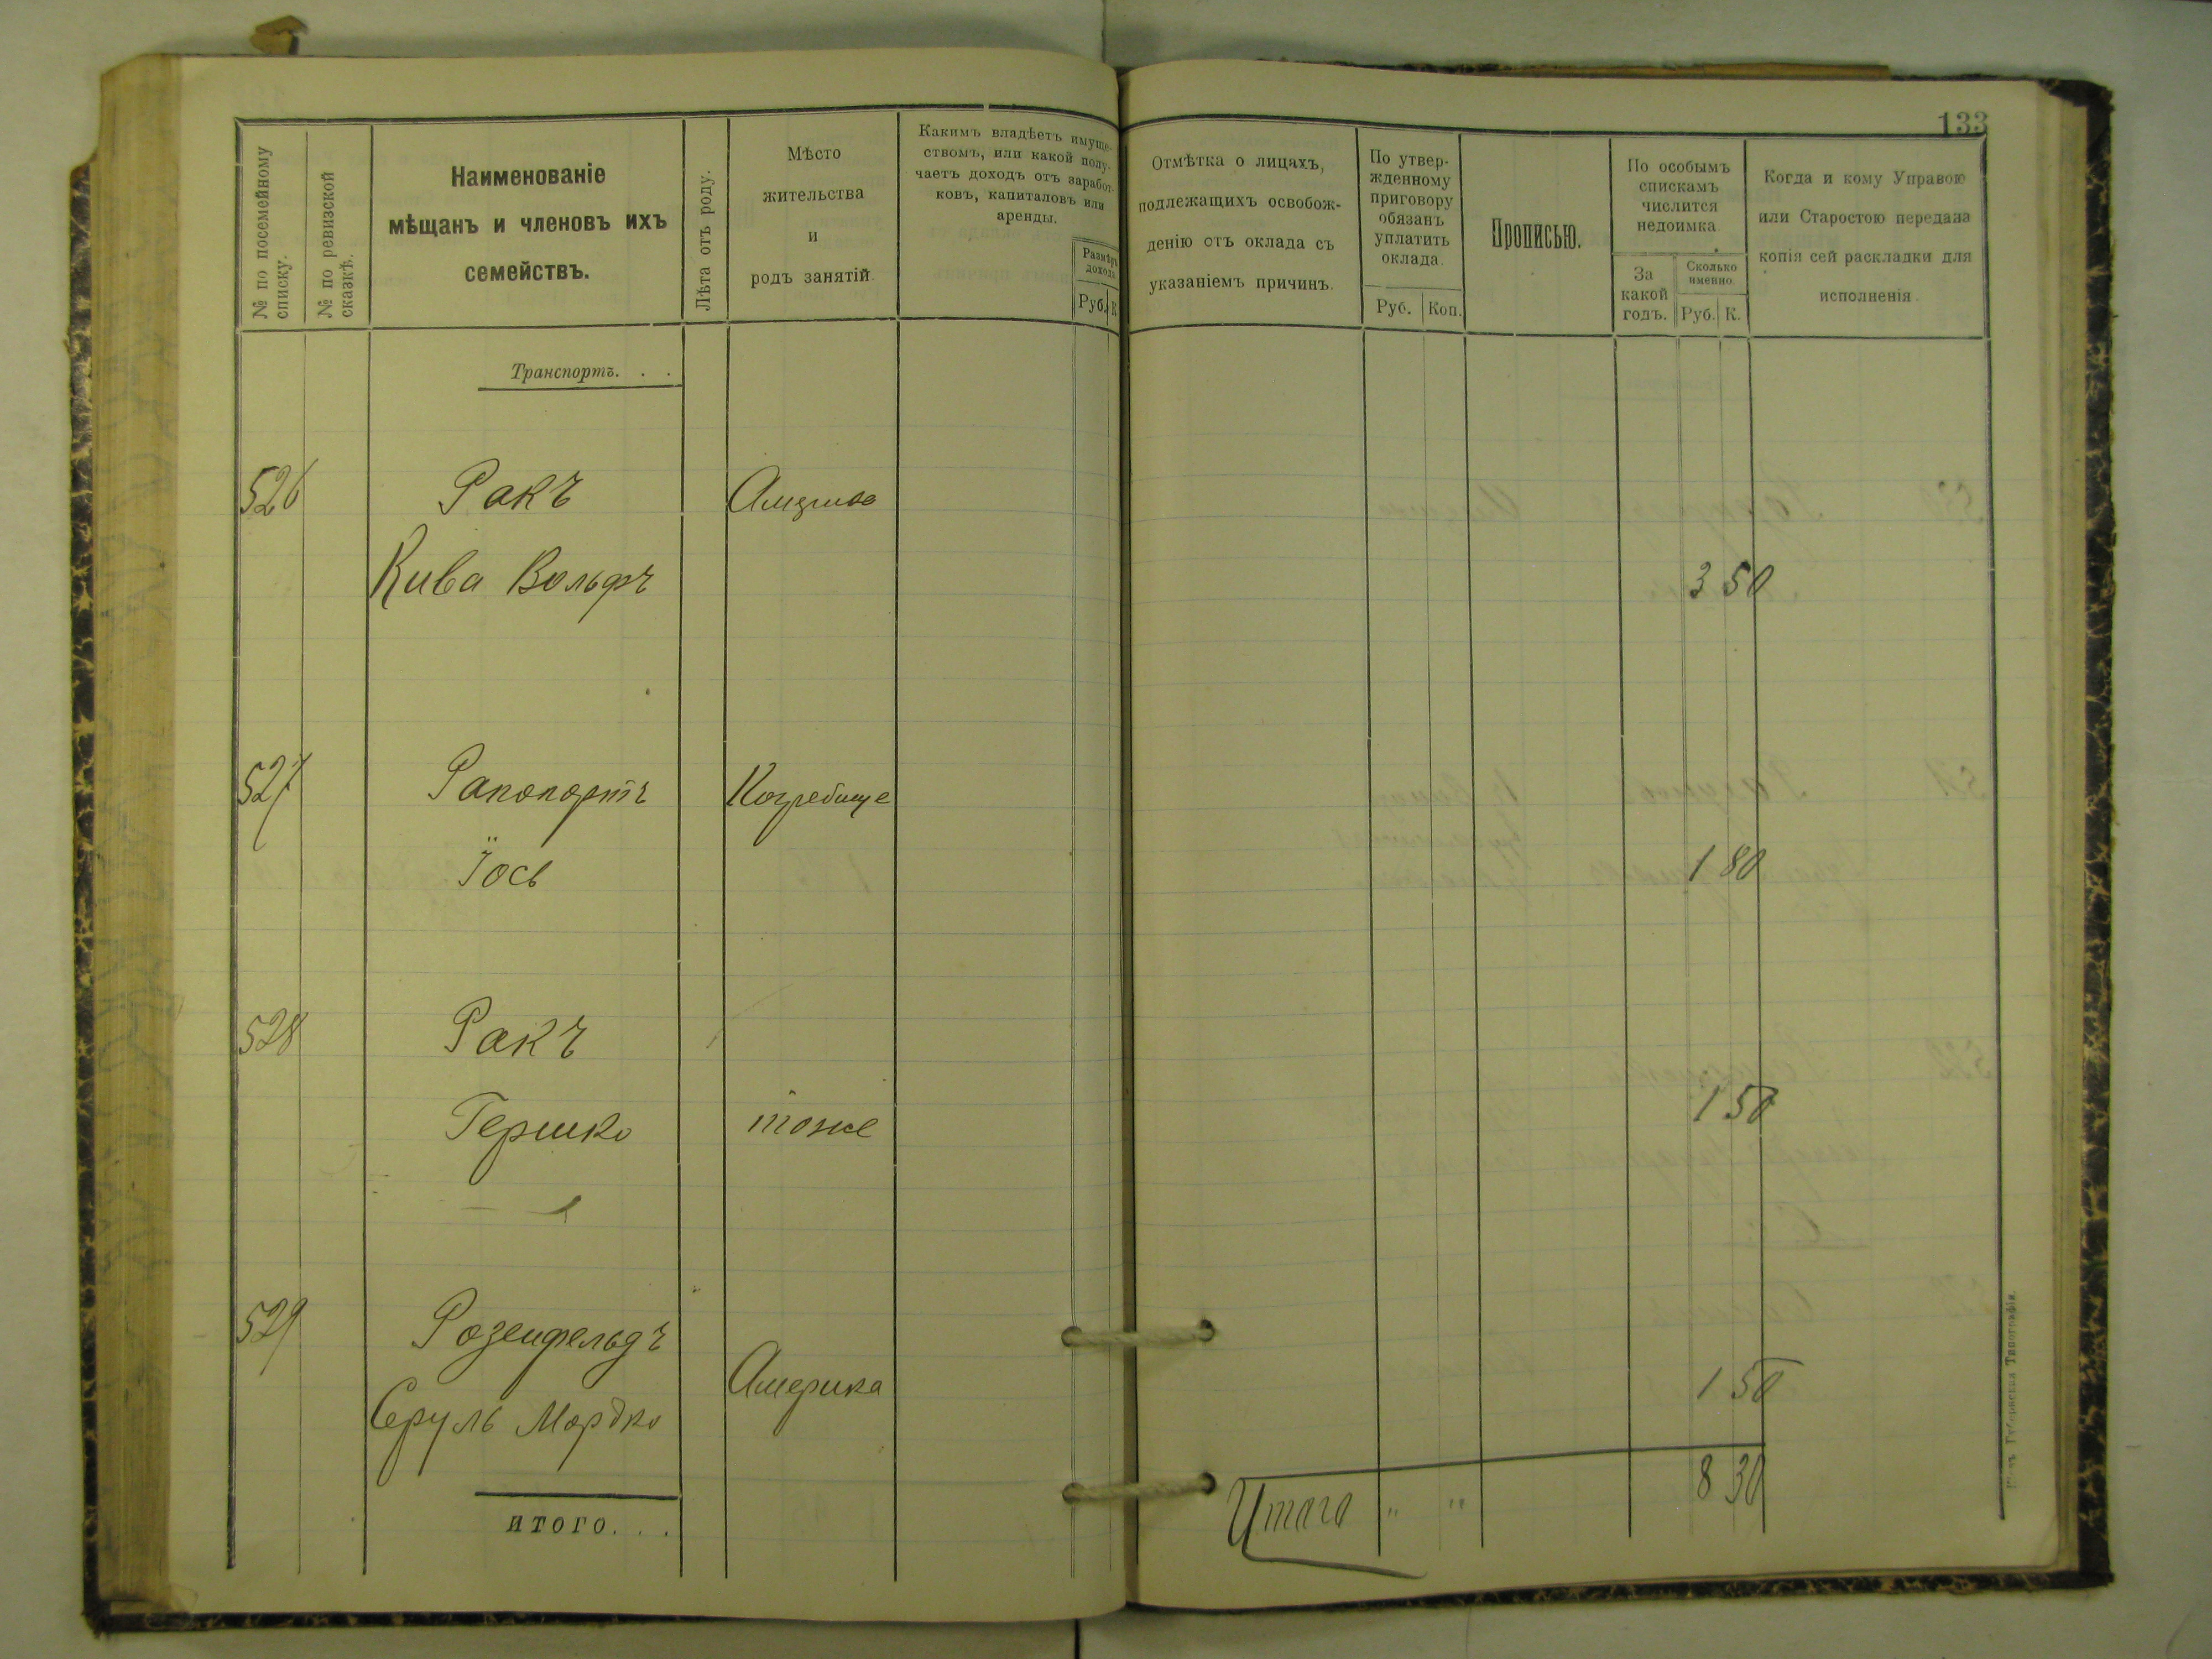 133
№ по посемейному списку.
№ по ревизской сказкѣ.
Наименованіе
мѣщанъ и членовъ ихъ
семействъ.
Лѣта отъ роду.
Мѣсто
жительства
и
родъ занятій.
Какимъ владѣетъ имуще-
ствомъ, или какой полу-
чаетъ доходъ отъ заработ-
ковъ, капиталовъ или
аренды.
Размѣръ
дохода
Руб. К
Отмѣтка о лицахъ,
подлежащихъ освобож-
денію отъ оклада съ
указаніемъ причинъ.
По утвер-
жденному
приговору
обязанъ
уплатить
оклада.
Руб. Коп.
Прописью.
По особымъ
спискамъ
числится
недоимка.
За
какой
годъ.
Сколько
именно.
Руб. К.
Когда и кому Управою
или Старостою передана
копія сей раскладки для
исполненія.
Транспортъ. . .
526 Ракъ
Кива Вольфъ 3 50
527 Рапопортъ
Іось 1 80
528 Ракъ
Гершко тоже 1 50
529 Розенфельдъ
Америка 1 50
Сруль Мордко
8 30
Итого " "
ИТОГО. . .